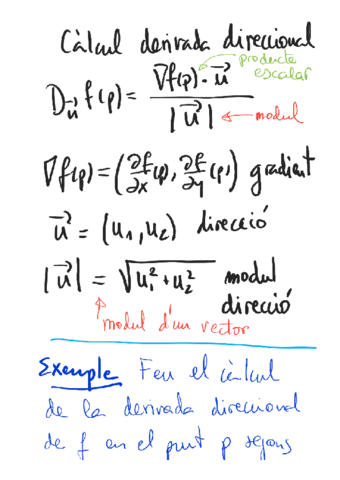 Càlcul derivada direccional
producte
escalar
D_{\vec{u}} f(p) = \frac{∇f(p) · \vec{u}}{|\vec{u}|} ← modul
∇f(p) = (∂f/∂x (p), ∂f/∂y (p)) gradient
\vec{u} = (u₁, u₂) direcció
|\vec{u}| = √(u₁² + u₂²) modul
direcció
modul d'un vector
Exemple Feu el càlcul
de la derivada direccional
de f en el punt p segons